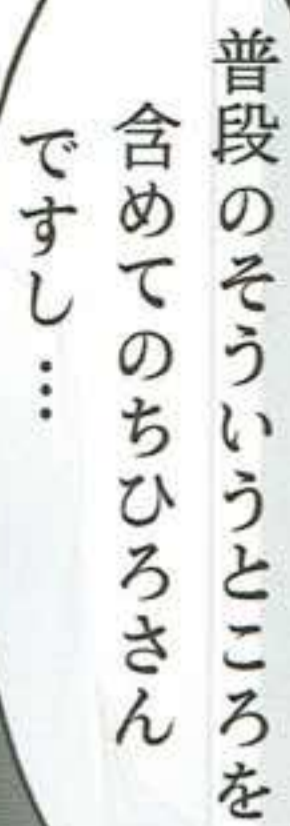 普段のそういうところを
含めてのちひろさん
ですし…